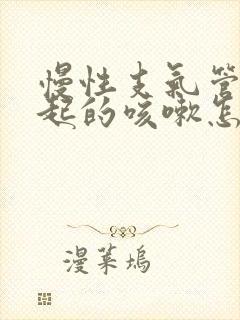 慢性支气管
起的咳嗽怎
漫菜坞